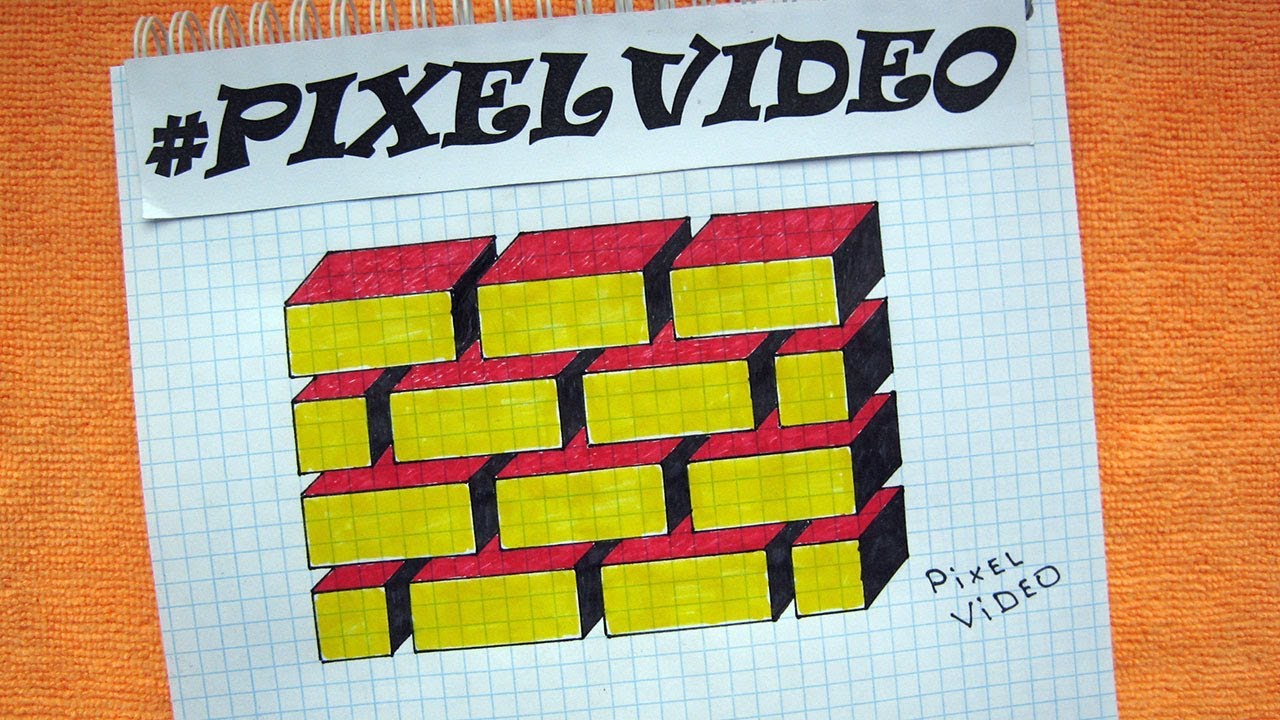 #PIXELVIDEO
PiXEL
ViDEO